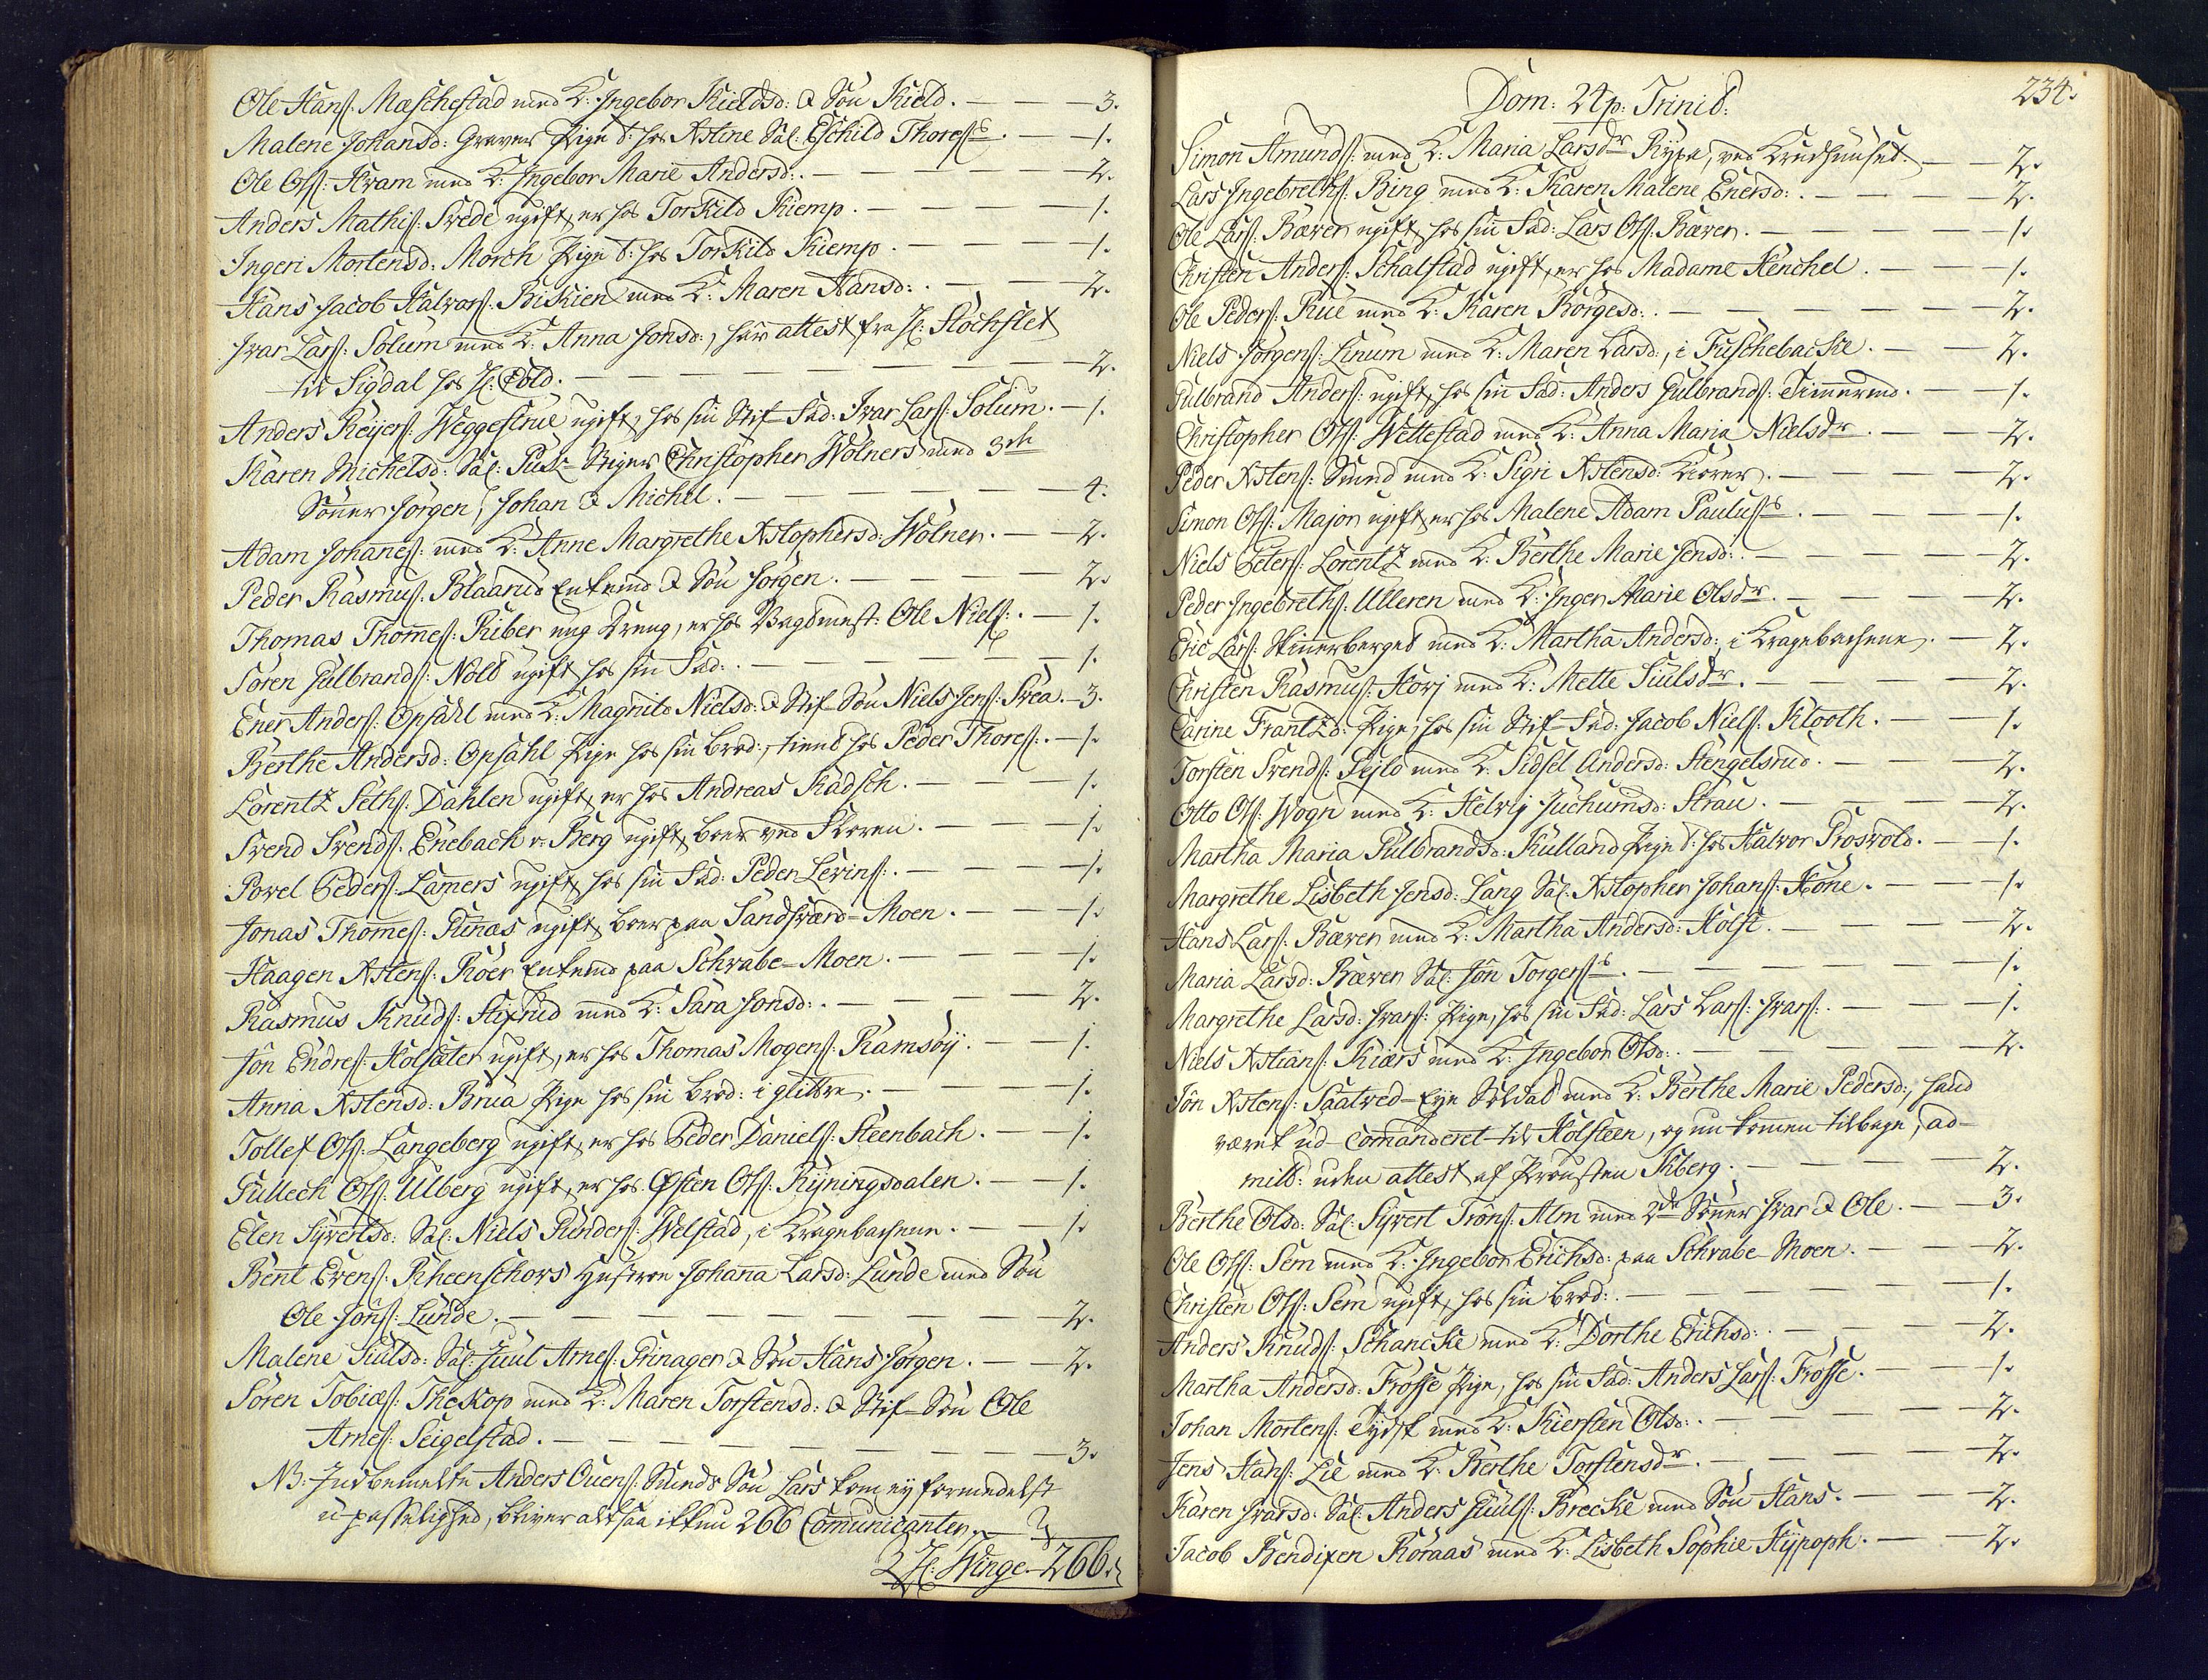 Ole Hans: Mæschestad med K: Ingebor Kieldsd: & Søn Kield. — — 3.
Malene Johansd: Graver Pige t: hos Kstine Sal: Eschild Thores:s. — 1.
Ole Ols: Kram med K: Ingebor Marie Andersd: . — — — — 2.
Anders Mathis: Svede ugift, er hos Torkild Kiemp. — — — 1.
Ingeri Mortensd: Morch Pige t: hos Torkild Kiemp. — — — 1.
Hans Jacob Halvors: Biskien med K: Maren Hansd: . — — 2.
Ivar Lars: Solum med K: Anna Jonsd:, har attest fra H: Stochflet
til Sigdal hos H: Cold. — — — — — — 2.
Anders Reyers: Weggesrue ugift, hos sin Stif-Fad: Ivar Lars: Solum. — 1.
Karen Michelsd: Sal: Puk-Stiger Christopher Wølners med 3de
Sønner Jørgen, Johan & Michel. — — — — 4.
Adam Johannes: med K: Anne Margrethe Kstophersd: Wølner. — 2.
Peder Rasmus: Blaarud Enkemd & Søn Jørgen. — — — 2.
Thomas Thomes: Riber ung Dreng, er hos Vagtmest: Ole Niels: . — 1.
Søren Gulbrands: Nold ugift hos sin Fad: . — — — — 1.
Ener Anders: Opsahl med K: Magnild Nielsd: & Stif-Søn Niels Jens: Svea. — 3.
Berthe Andersd: Opsahl Pige hos sin Brod:, tient hos Peder Thores: . — 1.
Lorentz Seths: Dahlen ugift, er hos Andreas Radsch. — — 1.
Svend Svends: Enebach v: Berg ugift, boer ved Skoven. — — 1.
Povel Peders: Lamers ugift, hos sin Fad: Peder Levins: . — — 1.
Jonas Thomes: Runas ugift, boer paa Sandsværd-Moen. — — 1.
Haagen Kstens: Roer Enkemd paa Schrabe-Moen. — — 1.
Rasmus Knuds: Stixrud med K: Sara Jonsd: . — — — 2.
Jon Endres: Holsæter ugift, er hos Thomas Mogens: Ramsøy. — 1.
Anna Kstensd: Brua Pige hos sin Brod: i glitre. — — — 1.
Tollef Ols: Langeberg ugift, er hos Peder Daniels: Steenbach. — 1.
Gullech Ols: Ulberg ugift, er hos Østen Ols: Ryningsdalen. — 1.
Elen Syvertsd: Sal: Niels Gunders: Welstad, i Kragebachene. — 1.
Bent Evens: Rheenschors Hustroe Johana Larsd: Lunde med Søn
Ole Jons: Lunde. — — — — — — 2.
Malene Juulsd: Sal: Juul Arnes: Grinager & Søn Hans Jørgen. — 2.
Søren Tobias: Theskop med K: Maren Torstensd: & Stif-Søn Ole
Arnes: Seigelstad. — — — — — — 3.
NB: Indbemelte Anders Ouens: Smeds Søn Lars kom ey formedelst
upasselighed, bliver altsaa ikkun 266 Comunicanter.
H: Winge. 266.
234.
Dom: 24 p: Trinit:
Simon Amunds: med K: Maria Larsdr Rype, ved Krudhuuset. — 2.
Lars Ingebreths: Bing med K: Karen Malene Enersd: . — — 2.
Ole Lars: Bæver ugift, hos sin Fad: Lars Ols: Bæver. — — 1.
Christen Anders: Schalstad ugift, er hos Madame Henchel. — 1.
Ole Peders: Rue med K: Karen Børgesd: . — — — — 2.
Niels Jørgens: Linum med K: Maren Larsd:, i Fuschebacke. — 2.
Gulbrand Anders: ugift, hos sin Fad: Anders Gulbrands: Timermd. — 1.
Christopher Ols: Wettestad med K: Anna Maria Nielsdr. — 2.
Peder Kstens: Smed med K: Sigri Kstensd: Kiører. — — 2.
Simon Ols: Major ugift er hos Malene Adam Paulus:s. — — 1.
Niels Peters: Lorentz med K: Berthe Marie Jensd: . — — 2.
Peder Ingebreths: Ulleren med K: Inger Marie Olsdr. — — 2.
Eric Lars: Skinerberget med K: Martha Andersd: i Kragebachene. — 2.
Christen Rasmus: Hovj med K: Mette Juulsdr. — — — 2.
Carine Frantzd: Pige, hos sin Stif-Fad: Jacob Niels: Klooth. — 1.
Torsten Svends: Pejlo med K: Sidsel Andersd: Stengelsrud. — 2.
Otto Ols: Wogn med K: Helvig Juchumsd: Strau. — — 2.
Martha Maria Gulbrandsd: Rulland Pige t: hos Halvor Prosvold. — 1.
Margrethe Lisbeth Jensd: Lang Sal: Kstopher Johans: Kone. — 1.
Hans Lars: Bæver med K: Martha Andersd: Holst. — — 2.
Maria Larsd: Bæver Sal: Jon Torgers:s. — — — — 1.
Margrethe Larsd: Ivars: Pige, hos sin Fad: Lars Lars: Ivars: . — 1.
Niels Kstians: Kiærs med K: Ingebor Olsd: . — — — 2.
Jon Kstens: Saatved-Eye Soldat med K: Berthe Marie Pedersd:, hand
været ud-comanderet til Holsteen, og nu kommen tilbage, ad-
mitt: uden attest af Provsten Skberg. — — — 2.
Berthe Olsd: Sal: Syvert Trons: Alm med 2de Sønner Ivar & Ole. — 3.
Ole Ols: Sem med K: Ingebor Erichsd: paa Schrabe-Moen. — 2.
Christen Ols: Sem ugift, hos sin Brod: . — — — 1.
Anders Knuds: Schancke med K: Dorthe Erichsd: . — — 2.
Martha Andersd: Frosse Pige, hos sin Fad: Anders Lars: Frosse. — 1.
Johan Mortens: Tydsk med K: Kiersten Olsd: . — — — 2.
Jens Hans: Lie med K: Berthe Torstensdr. — — — 2.
Karen Ivarsd: Sal: Anders Juuls: Brecke med Søn Hans. — 2.
Jacob Bendixen Røraas med K: Lisbeth Sophie Hypoph. — 2.